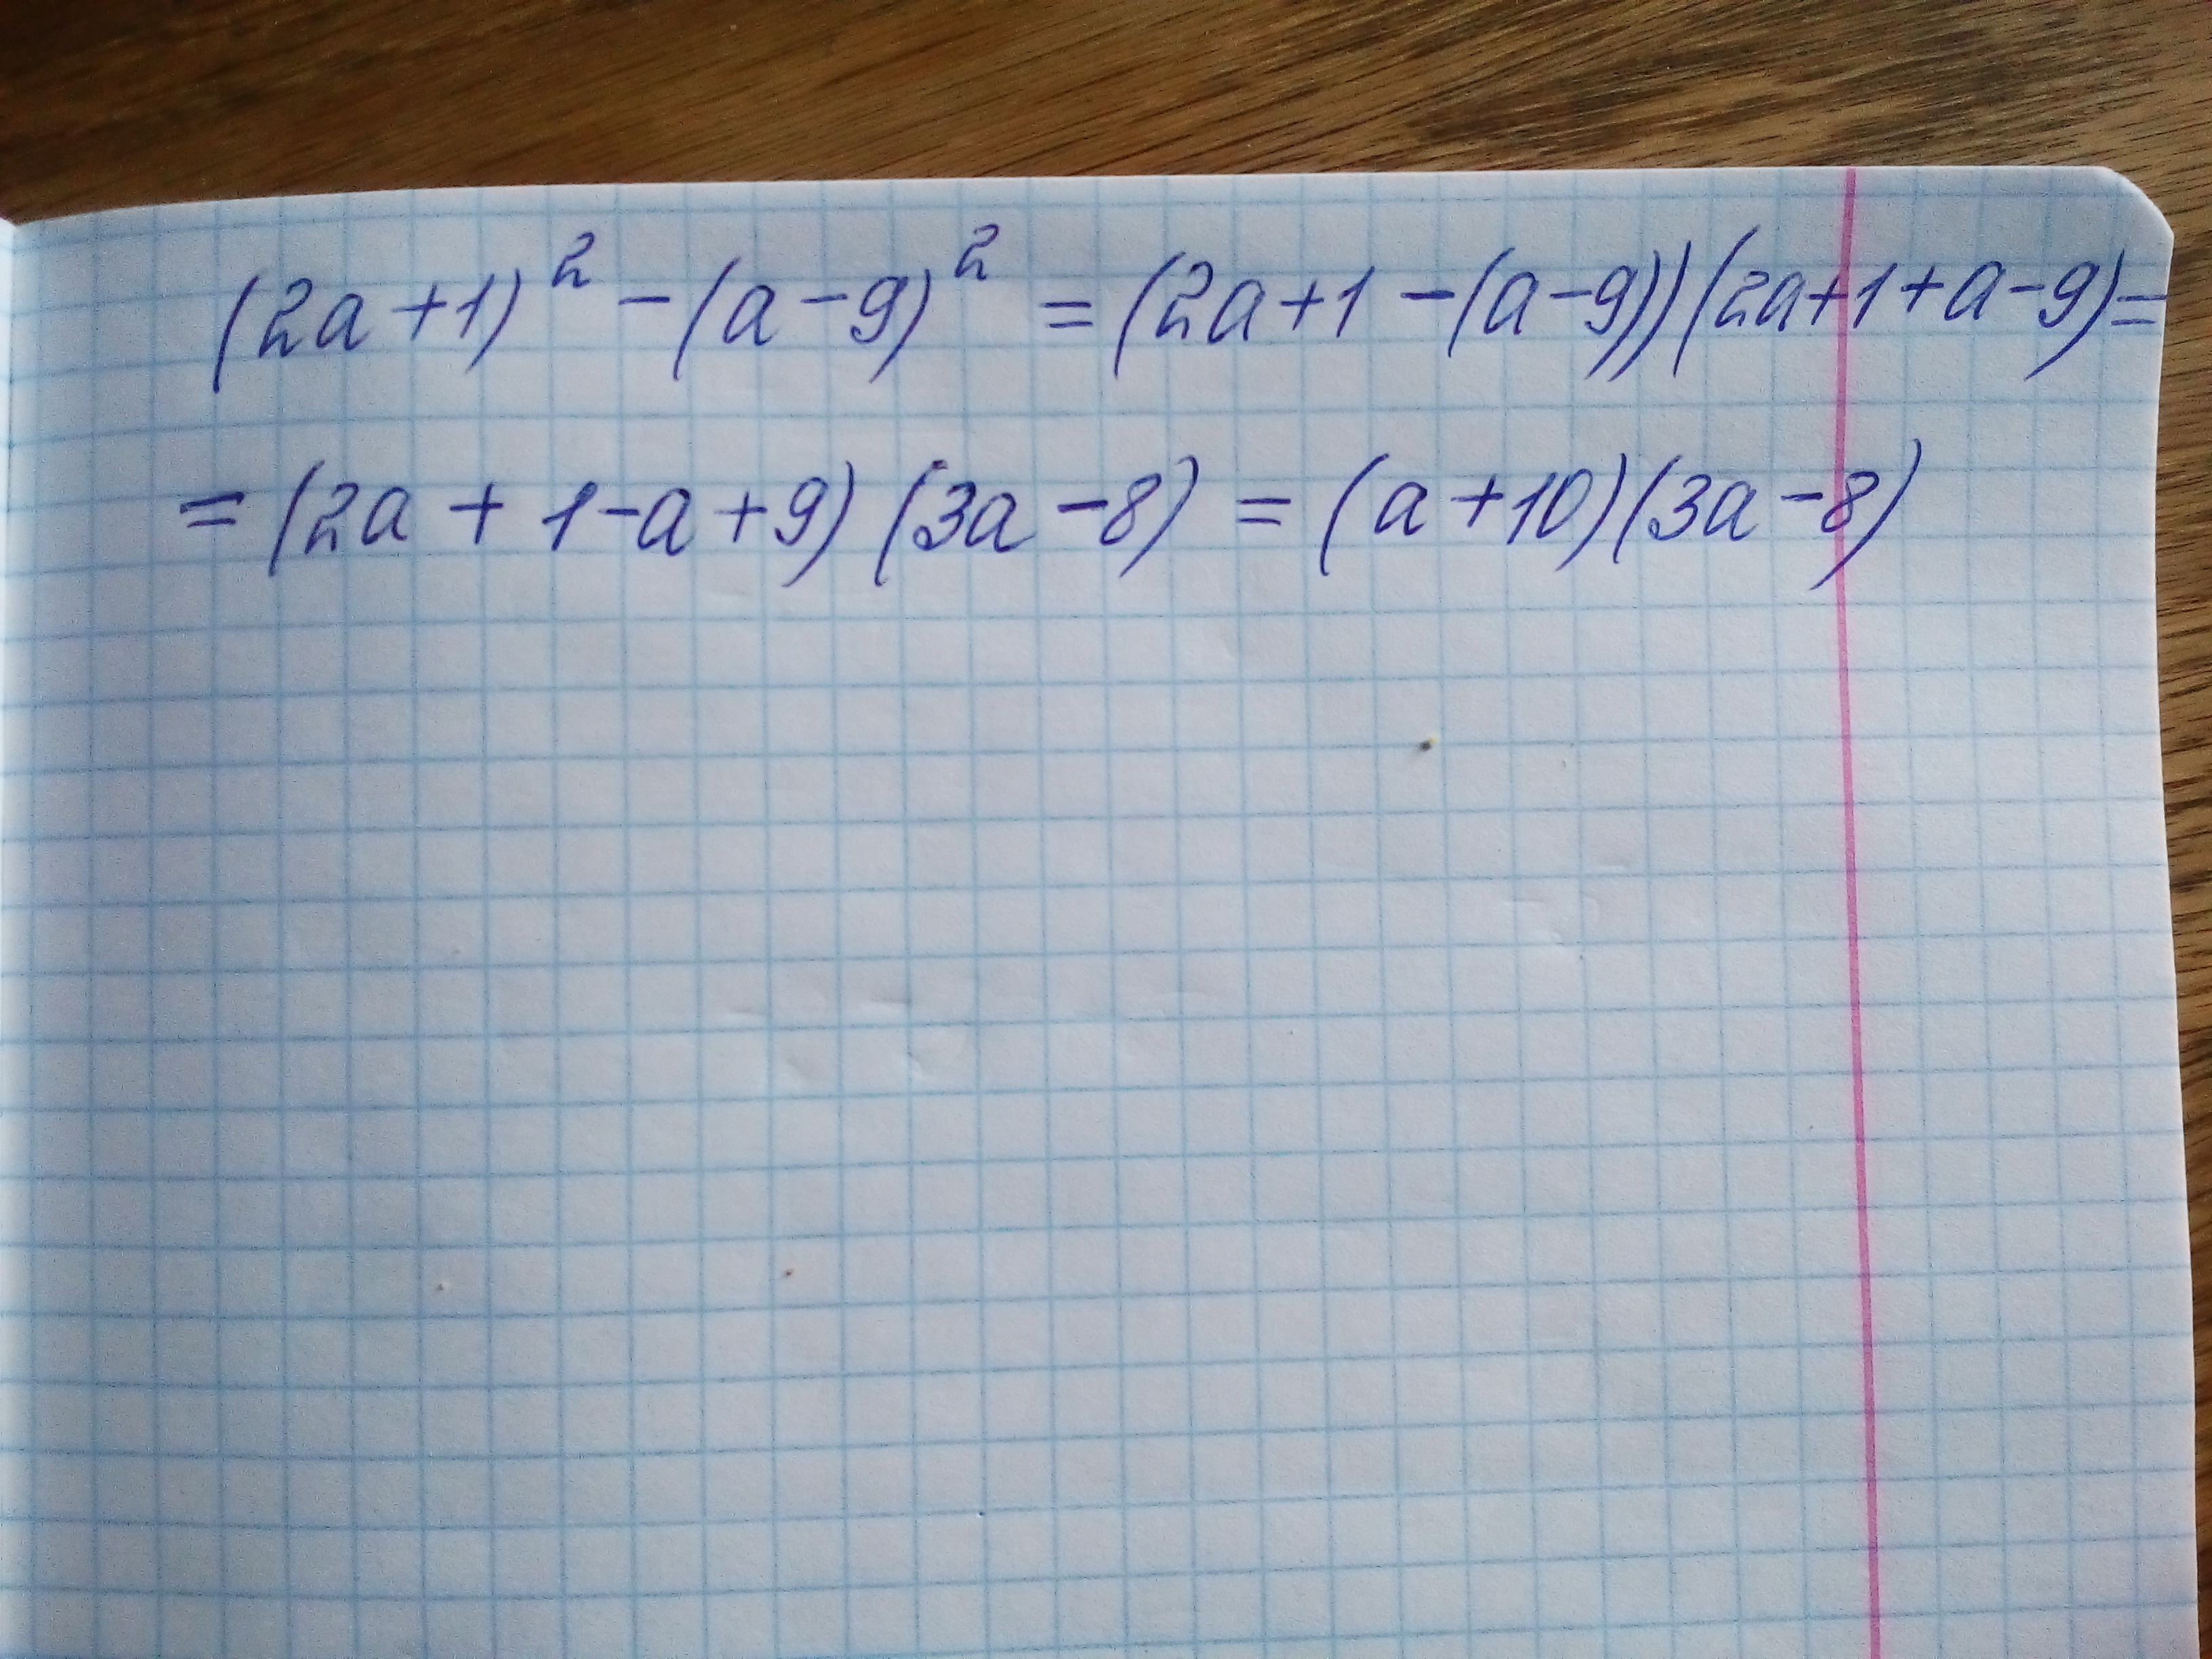 (2a+1)² - (a-9)² = (2a+1-(a-9))(2a+1+a-9)=
= (2a+1-a+9)(3a-8) = (a+10)(3a-8)